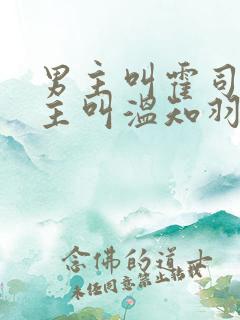 男主叫霍司
主叫温知羽
念佛的道士
未经同意禁止转载